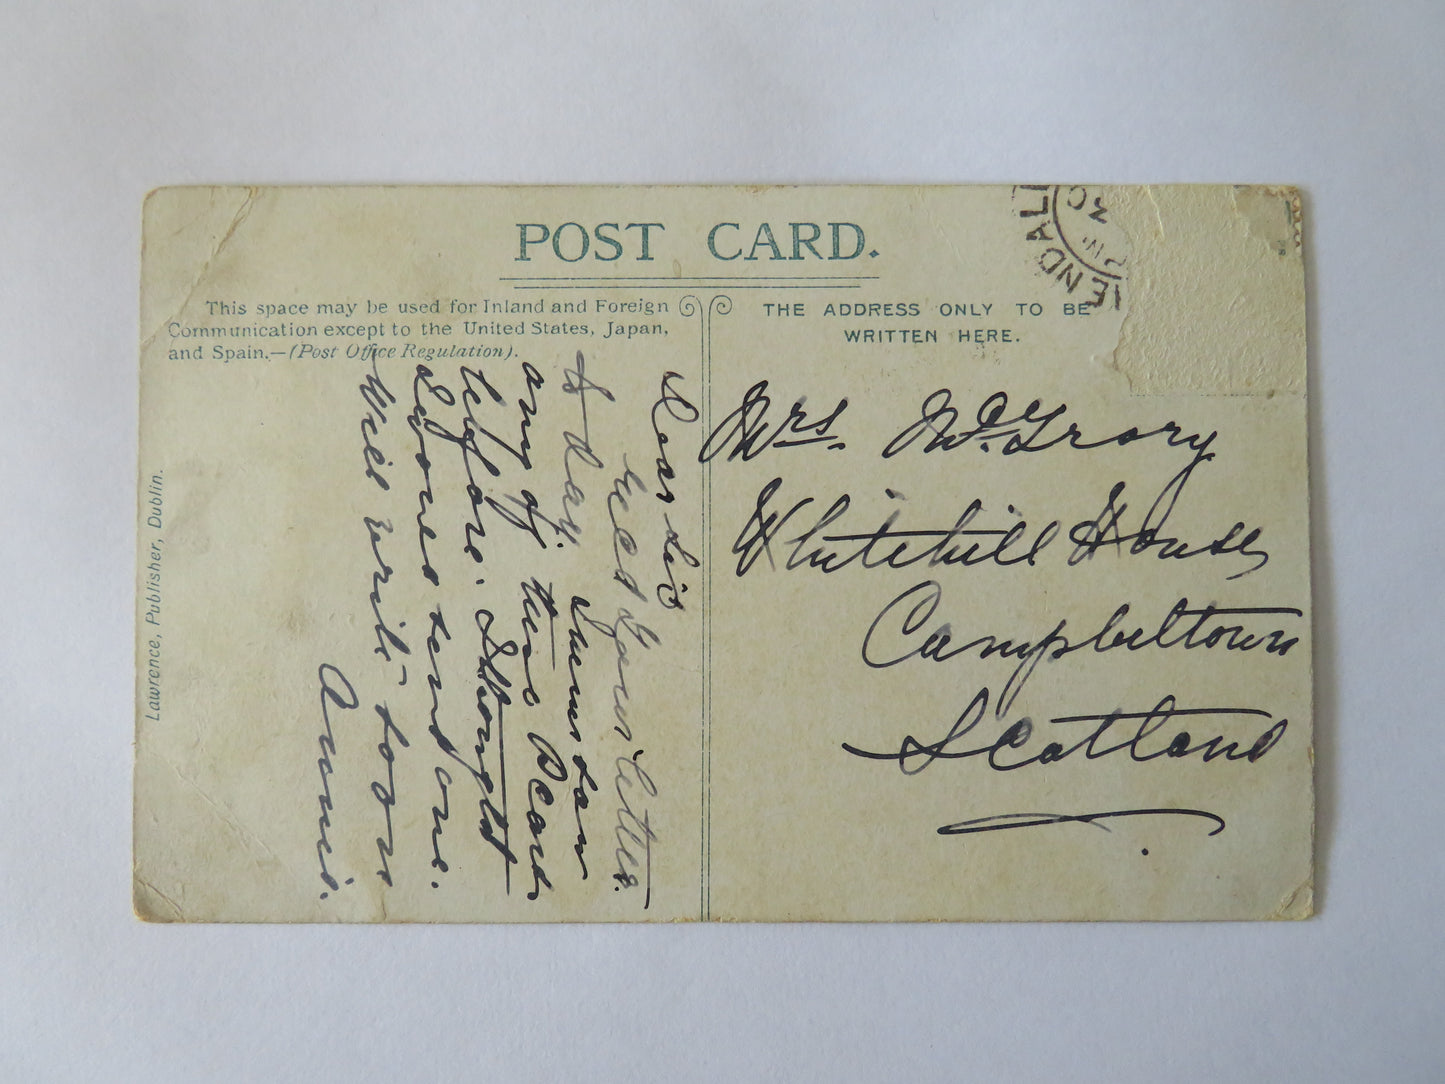 POST CARD.
This space may be used for Inland and Foreign
Communication except to the United States, Japan,
and Spain.—(Post Office Regulation).
THE ADDRESS ONLY TO BE
WRITTEN HERE.
ENDAL
PM
30
Dear Sis
recd your letter
to day. I never saw
any of this P Card
before. I thought
I would send one.
Will write soon
Annie.
Mrs. McGrory
Whitehill House
Campbeltown
Scotland
Lawrence, Publisher, Dublin.